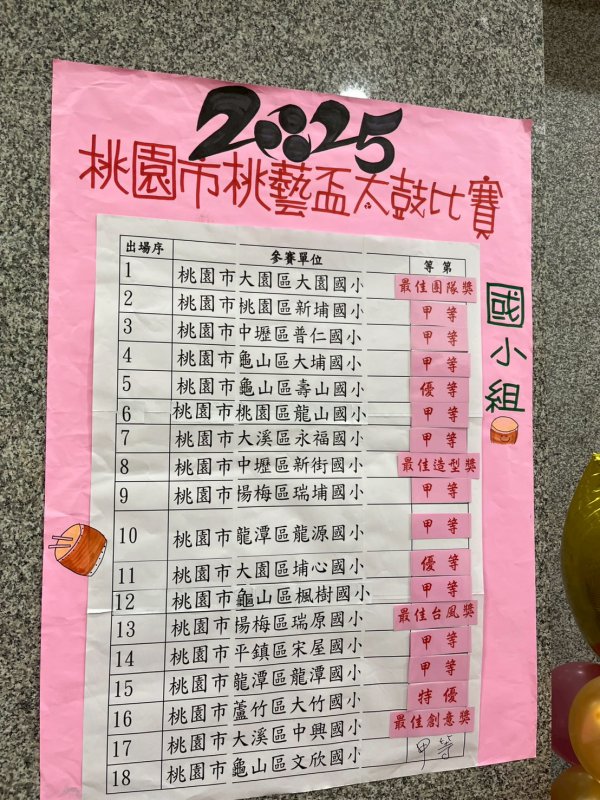 2025
桃園市桃藝盃太鼓比賽
國小組
出場序 參賽單位 等第
1 桃園市大園區大園國小 最佳團隊獎
2 桃園市桃園區新埔國小 甲等
3 桃園市中壢區普仁國小 甲等
4 桃園市龜山區大埔國小 甲等
5 桃園市龜山區壽山國小 優等
6 桃園市桃園區龍山國小 甲等
7 桃園市大溪區永福國小 甲等
8 桃園市中壢區新街國小 最佳造型獎
9 桃園市楊梅區瑞埔國小 甲等
10 桃園市龍潭區龍源國小 甲等
11 桃園市大園區埔心國小 優等
12 桃園市龜山區楓樹國小 甲等
13 桃園市楊梅區瑞原國小 最佳台風獎
14 桃園市平鎮區宋屋國小 甲等
15 桃園市龍潭區龍潭國小 甲等
16 桃園市蘆竹區大竹國小 特優
17 桃園市大溪區中興國小 最佳創意獎
18 桃園市龜山區文欣國小 甲等